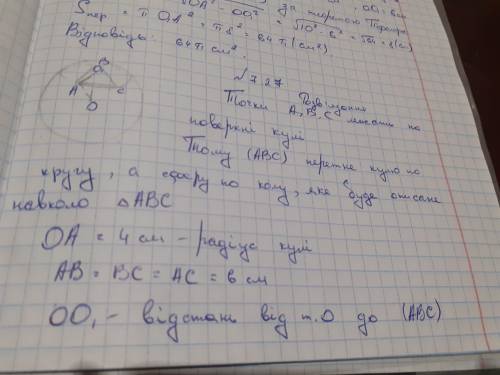 Sпер = π OA² = π 8² = 64 π (см²)
Відповідь: 64 π см².
№ 727
Розв'язання
Точки A, B, C лежать на
поверхні кулі
Тому (ABC) перетне кулю по
кругу, а сферу по колу, яке буде описане
навколо △ABC
OA = 4 см - радіус кулі
AB = BC = AC = 6 см
OO₁ - відстань від т. O до (ABC)
B
A
C
O